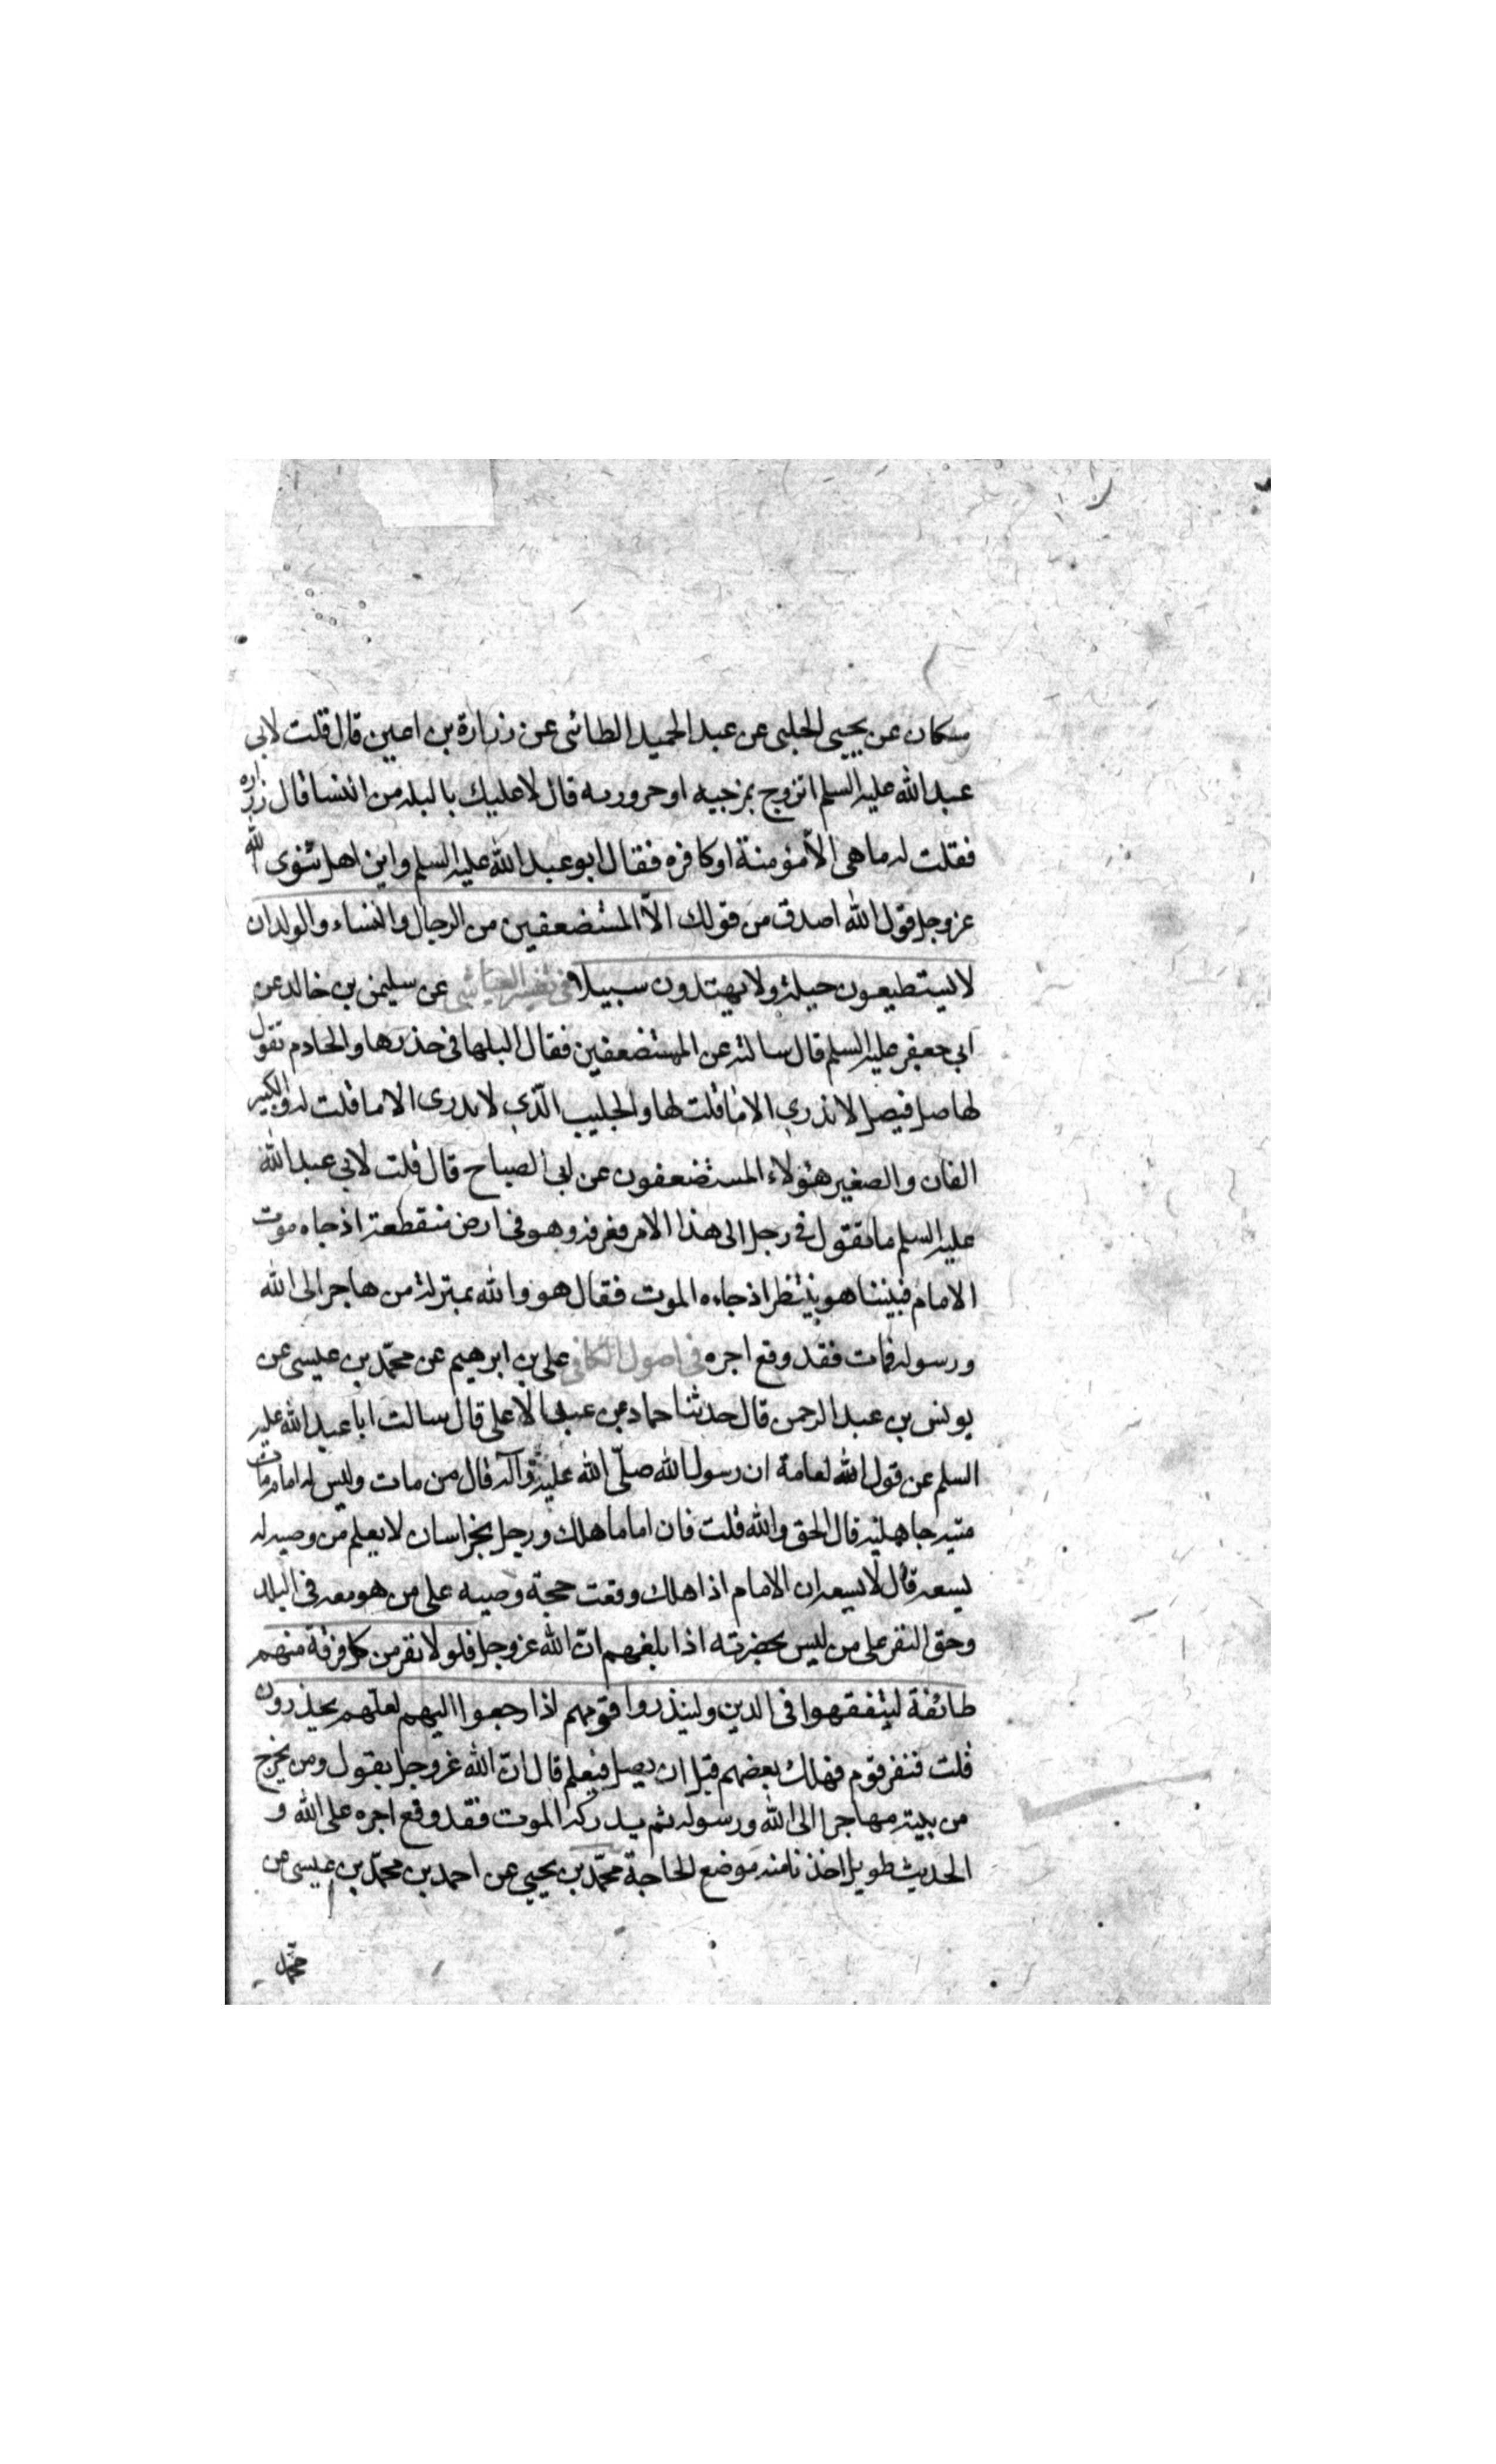 مسكان عن يحيى الحلبى عن عبد الحميد الطائى عن زرارة بن اعين قال قلت لابى
عبد الله عليه السلم اتزوج بمرجيه او حروريه قال لا عليك بالبله من النسا قال زراره
فقلت له ما هى الا مؤمنة او كافره فقال ابو عبد الله عليه السلم واين اهل ثنوى الله
عز وجل قول الله اصدق من قولك الا المستضعفين من الرجال والنساء والولدان
لا يستطيعون حيلة ولا يهتدون سبيلا فى تفسير العياشى عن سليمن بن خالد عن
ابى جعفر عليه السلم قال سالته عن المستضعفين فقال البلها فى خدرها والخادم تقول
لها صل فيصل لا تدرى الا ما قلت لها والجليب الذى لا يدرى الا ما قلت له والكبير
الفان والصغير هؤلاء المستضعفون عن ابى الصباح قال قلت لابى عبد الله
عليه السلم ما تقول فى رجل الى هذا الامر فعرفه وهو فى ارض منقطعة اذ جاه موت
الامام فبيننا هو ينتظر اذ جاءه الموت فقال هو والله بمنزلة من هاجر الى الله
ورسوله فمات فقد وقع اجره فى اصول الكافى على بن ابرهيم عن محمد بن عيسى عن
يونس بن عبد الرحمن قال حدثنا حماد عن عبد الاعلى قال سالت ابا عبد الله عليه
السلم عن قول الله لعامة ان رسول الله صلى الله عليه وآله قال من مات وليس له امام مات
ميتة جاهلية قال الحق والله قلت فان اماما هلك ورجل بخراسان لا يعلم من وصيه له
يسعه قال لا يسعه ان الامام اذا هلك وقعت حجة وصيه على من هو معه فى البلد
وحق النفر على من ليس بحضرته اذا بلغهم ان الله عز وجل فلولا نفر من كل فرقة منهم
طائفة ليتفقهوا فى الدين ولينذروا قومهم اذا رجعوا اليهم لعلهم يحذرون
قلت فنفر قوم فهلك بعضهم قبل ان يصل فيعلم قال ان الله عز وجل يقول ومن يخرج
من بيته مهاجرا الى الله ورسوله ثم يدركه الموت فقد وقع اجره على الله و
الحديث طويل اخذنا منه موضع الحاجة محمد بن يحيى عن احمد بن محمد بن عيسى عن
محمد